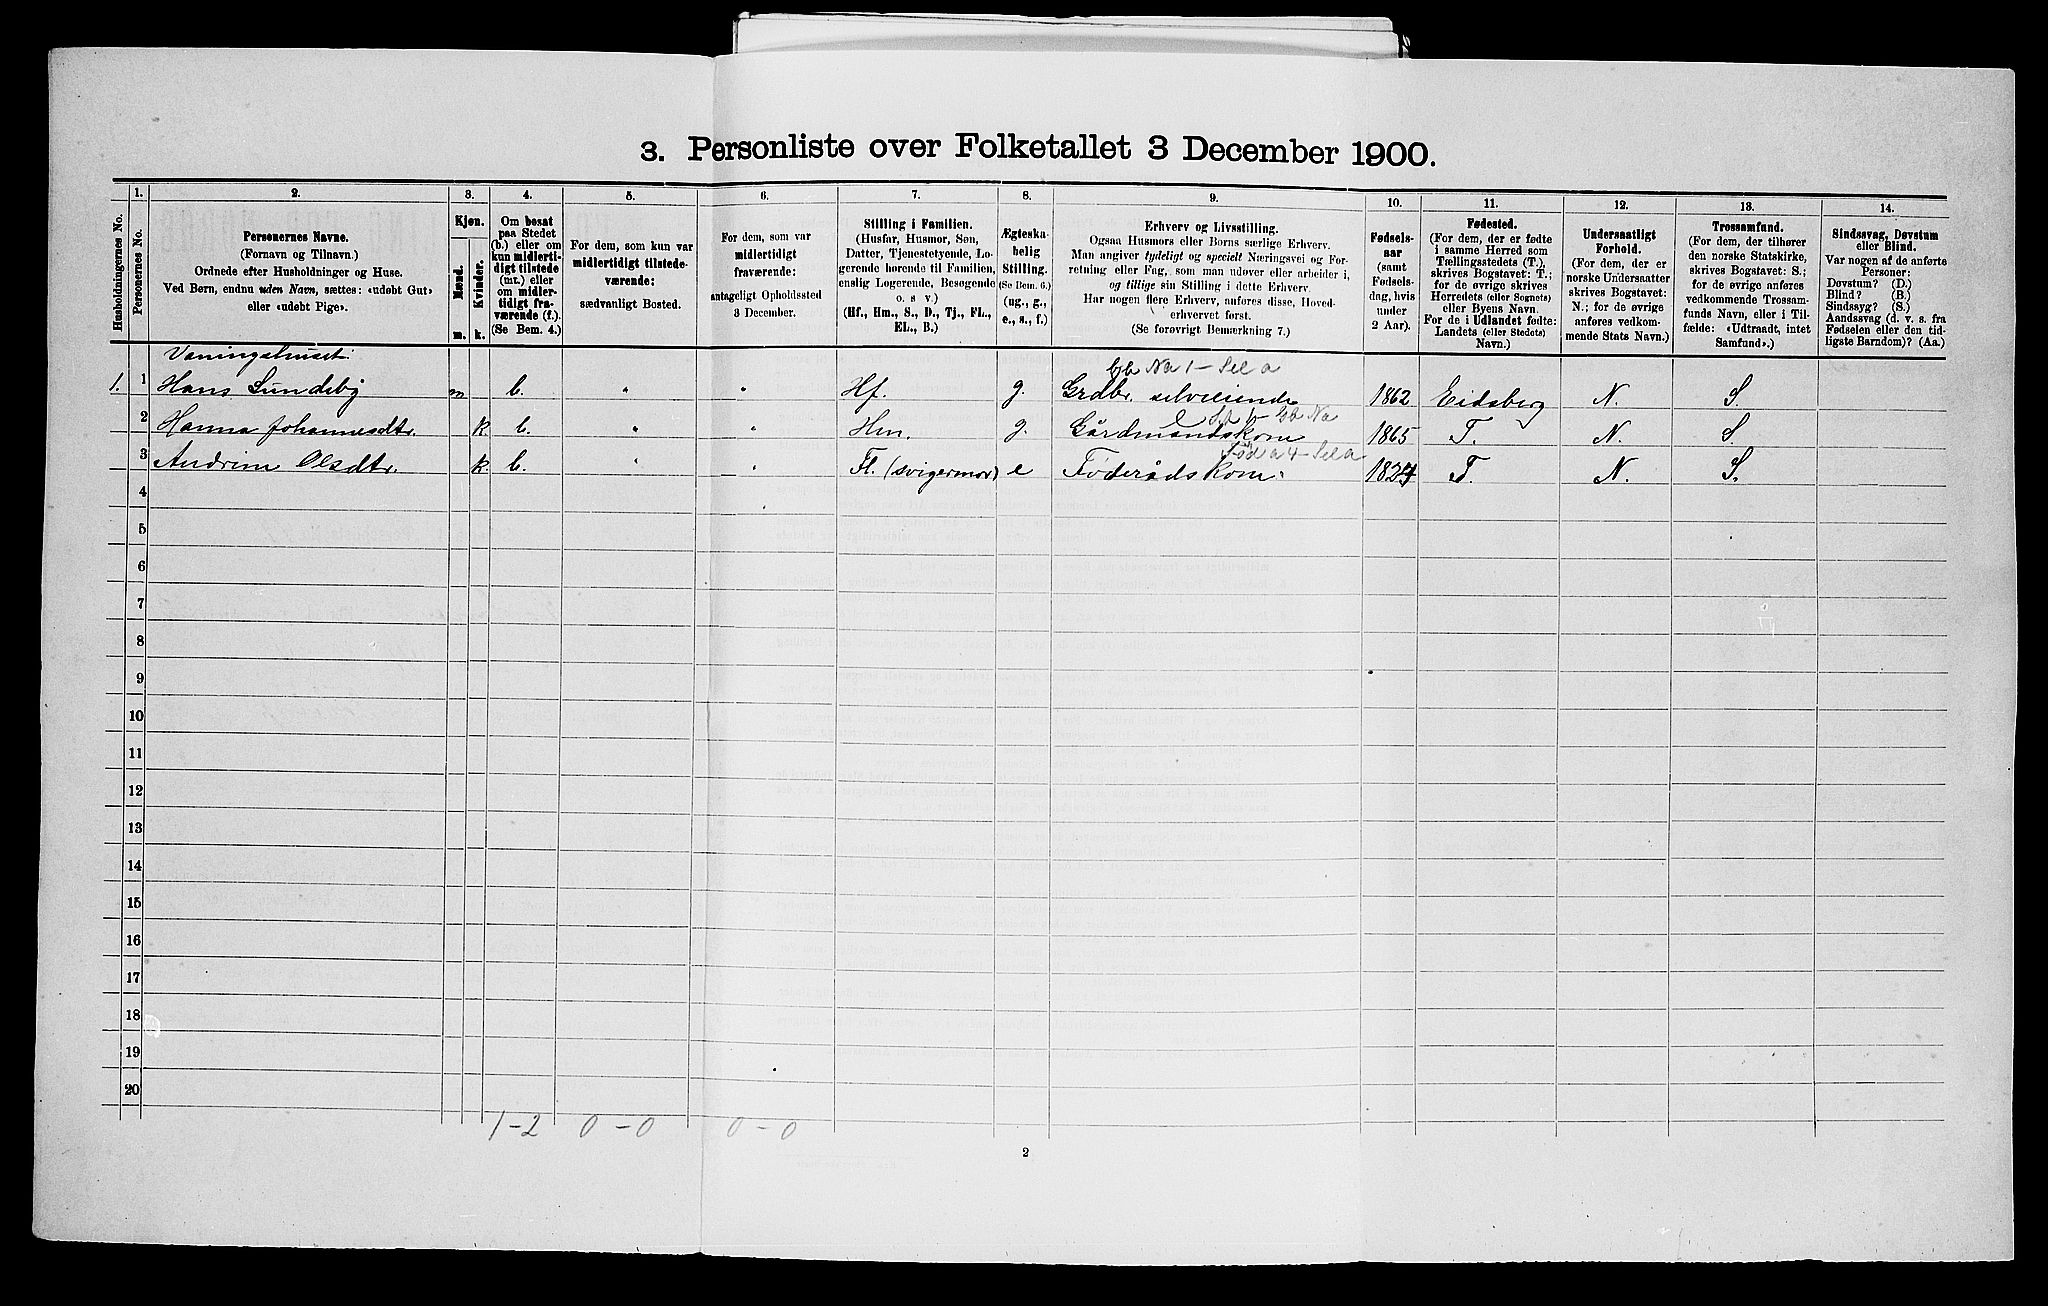 3. Personliste over Folketallet 3 December 1900.
Husholdningernes No.
1.
Personernes No.
2.
Personernes Navne.
(Fornavn og Tilnavn.)
Ordnede efter Husholdninger og Huse.
Ved Børn, endnu uden Navn, sættes: «udøbt Gut»
eller «udøbt Pige».
3.
Kjøn.
Mænd.
Kvinder.
m.
k.
4.
Om bosat
paa Stedet
(b.) eller om
kun midlerti-
digt tilstede
(mt.) eller
om midler-
tidigt fra-
værende (f.).
(Se Bem. 4.)
5.
For dem, som kun var
midlertidigt tilstede-
værende:
sædvanligt Bosted.
6.
For dem, som var
midlertidigt
fraværende:
antageligt Opholdssted
3 December.
7.
Stilling i Familien.
(Husfar, Husmor, Søn,
Datter, Tjenestetyende, Lo-
gerende hørende til Familien,
enslig Logerende, Besøgende
o. s. v.)
(Hf., Hm., S., D., Tj., FL.,
EL., B.)
8.
Ægteska-
belig
Stilling.
(Se Bem. 6.)
(ug., g.,
e., s., f.)
9.
Erhverv og Livsstilling.
Ogsaa Husmors eller Børns særlige Erhverv.
Man angiver tydeligt og specielt Næringsvei og For-
retning eller Fag, som man udøver eller arbeider i,
og tillige sin Stilling i dette Erhverv.
Har nogen flere Erhverv, anføres disse, Hoved-
erhvervet først.
(Se forøvrigt Bemærkning 7.)
10.
Fødsels-
aar
(samt
Fødsels-
dag, hvis
under
2 Aar).
11.
Fødested.
(For dem, der er fødte
i samme Herred som
Tællingsstedets (T.),
skrives Bogstavet: T.;
for de øvrige skrives
Herredets (eller Sognets)
eller Byens Navn.
For de i Udlandet fødte:
Landets (eller Stedets)
Navn.)
12.
Undersaatligt
Forhold.
(For dem, der er
norske Undersaatter
skrives Bogstavet:
N.; for de øvrige
anføres vedkom-
mende Stats Navn.)
13.
Trossamfund.
(For dem, der tilhører
den norske Statskirke,
skrives Bogstavet: S.;
for de øvrige anføres
vedkommende Trossam-
funds Navn, eller i Til-
fælde: «Udtraadt, intet
Samfund».)
14.
Sindssvag, Døvstum
eller Blind.
Var nogen af de anførte
Personer:
Døvstum? (D.)
Blind? (B.)
Sindssyg? (S.)
Aandssvag (d. v. s. fra
Fødselen eller den tid-
ligste Barndom)? (Aa.)
Vaningshuset:
Gb Na 1 - Sel a
1. 1 Hans Sundeby m b. " " Hf. g. Grdbr. selveiende 1862 Eidsberg N. S.
Gb Na
2 Hanna Johannesdtr. k. b. " " Hm. g. Gårdmandskone 1865 T. N. S.
Fød a 4 - Sel a
3 Andrine Olsdtr. k b. " " Fl. (svigermor) e Føderådskone 1824 T. N. S.
4
5
6
7
8
9
10
11
12
13
14
15
16
17
18
19
20
1-2 0-0 0-0
2